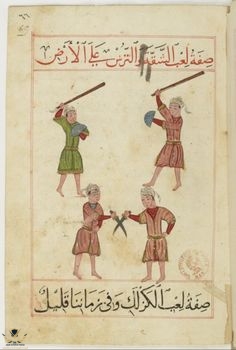 صفة لعب الشقة والترس على الأرض
صفة لعب الكزلك وفي زماننا قليل